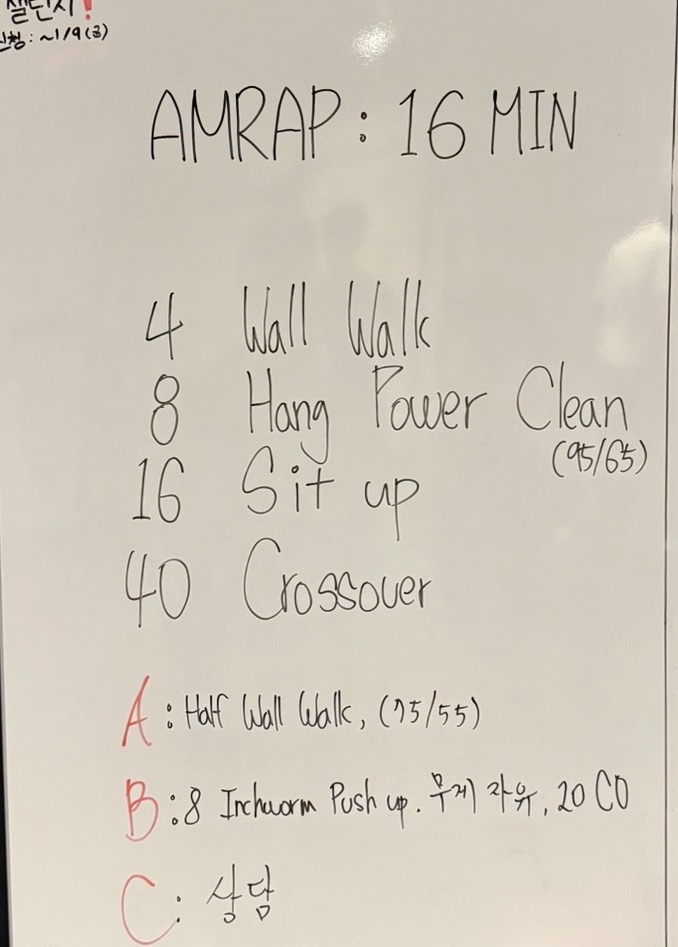 챌린지!
신청: ~1/9(금)
AMRAP: 16 MIN
4 Wall Walk
8 Hang Power Clean
(95/65)
16 Sit up
40 Crossover
A: Half Wall Walk, (75/55)
B: 8 Inchworm Push up. 무게 자유, 20 CO
C: 상담